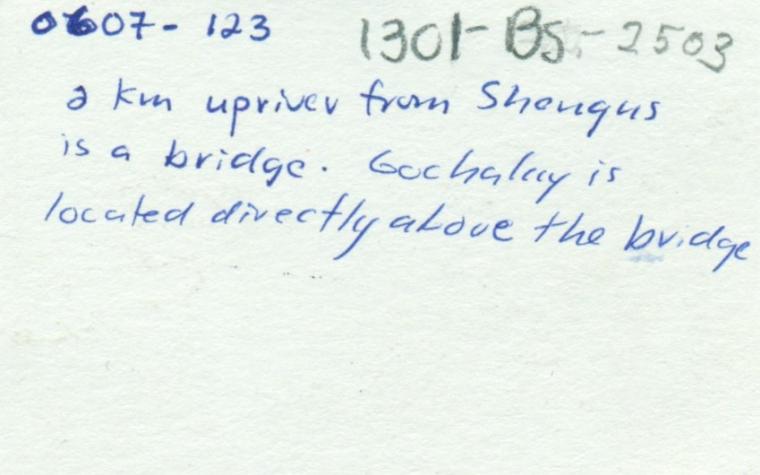 0607- 123 1301-BS-2503
2 km upriver from Shengus
is a bridge. Gochalay is
located directly above the bridge